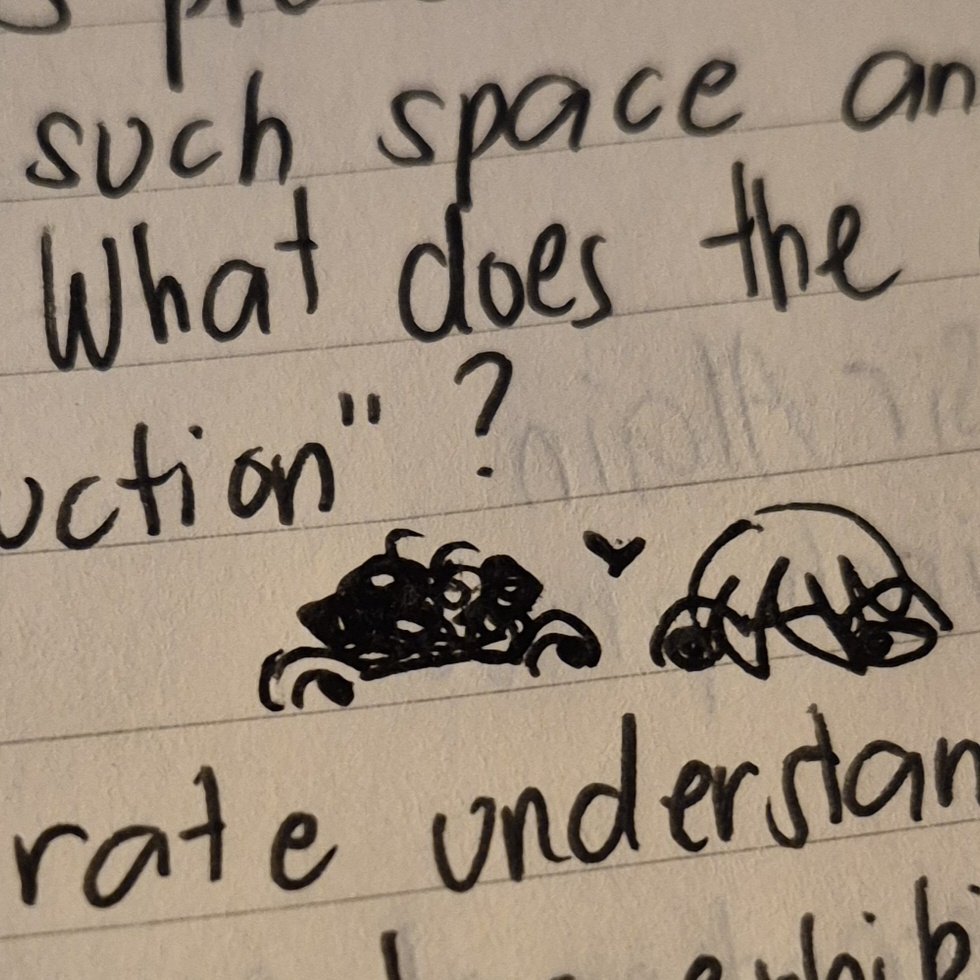 such space an
What does the
uction" ?
rate understan